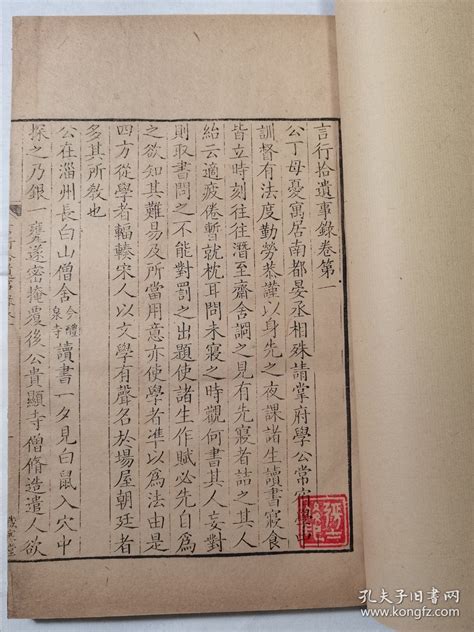 言行拾遺事錄卷第一
公丁母憂寓居南都晏丞相殊請掌府學公常宿學中
訓督有法度勤勞恭謹以身先之夜課諸生讀書寢食
皆立時刻往往潛至齋舍詗之見有先寢者詰之其人
紿云適疲倦暫就枕耳問未寢之時觀何書其人妄對
則取書問之不能對罰之出題使諸生作賦必先自為
之欲知其難易及所當用意亦使學者準以為法由是
四方從學者輻輳宋人以文學有聲名於場屋朝廷者
多其所教也
公在淄州長白山僧舍今醴泉寺讀書一夕見白鼠入穴中
探之乃銀一甕遂密掩覆後公貴顯寺僧脩造遣人欲
孔夫子旧书网
kongfz.com